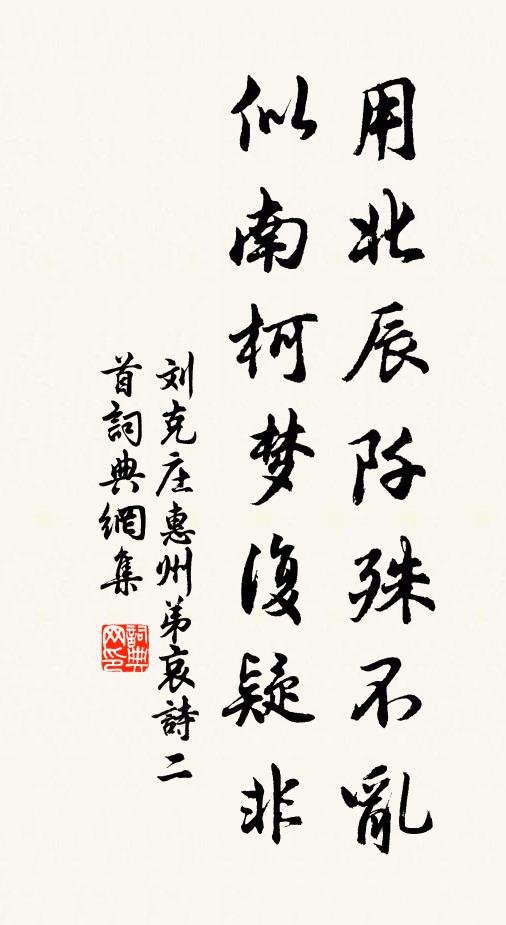 用北辰阡殊不亂
似南柯梦復疑非
刘克庄惠州弟哀詩二
首詞典網集
詞典
网印